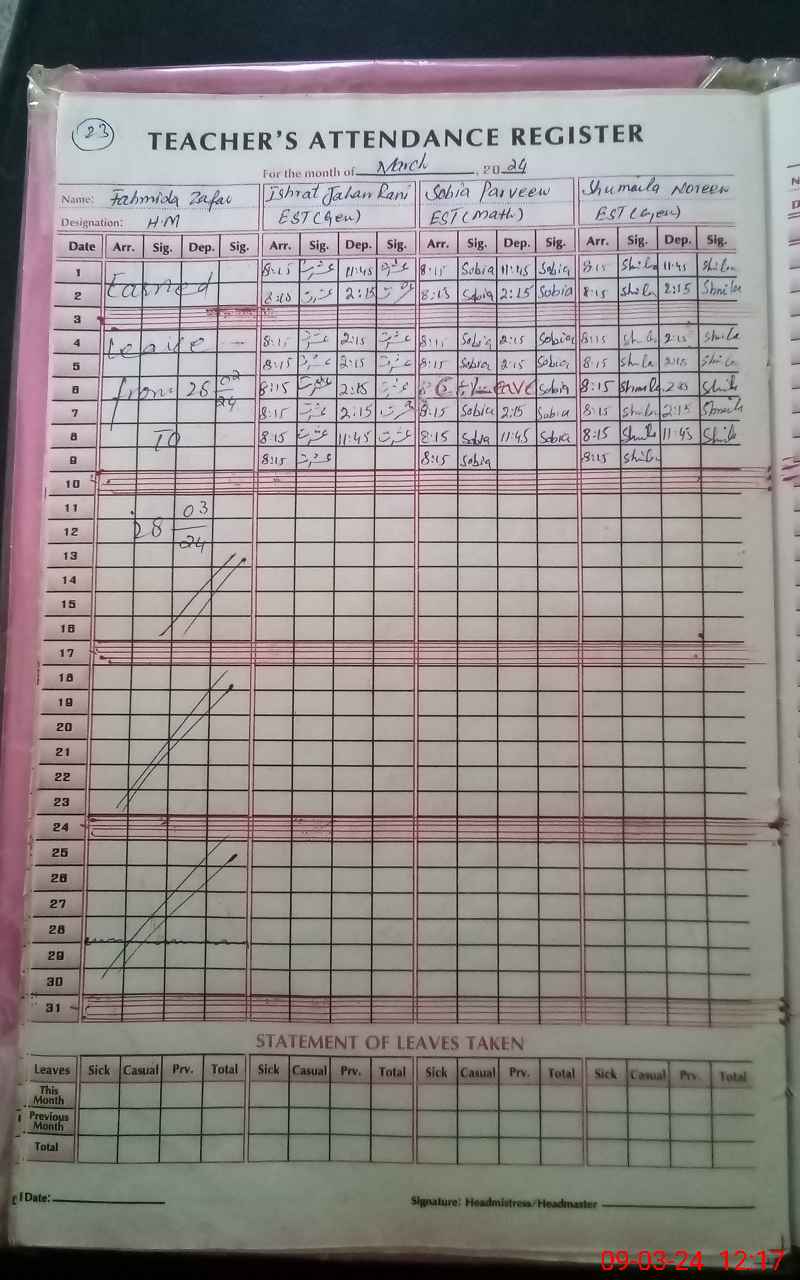 23
TEACHER'S ATTENDANCE REGISTER
For the month of March, 2024
Name: Fahmida Zafar Ishrat Jahan Rani Sobia Parveen Shumaila Noreen
Designation: H.M EST (Gen) EST (Math) EST (Gen)
Date Arr. Sig. Dep. Sig. Arr. Sig. Dep. Sig. Arr. Sig. Dep. Sig. Arr. Sig. Dep. Sig.
1 8:15 عشرت 11:45 عشرت 8:15 Sobia 11:45 Sobia 8:15 11:45
2 Earned عشرت 2:15 عشرت 8:15 Sobia 2:15 Sobia 8:15 2:15
3
4 leave 8:15 عشرت 2:15 عشرت 8:15 Sobia 2:15 Sobia 8:15 2:15
5 8:15 عشرت 2:15 عشرت 8:15 Sobia 2:15 Sobia 8:15 2:15
6 from 26 02/24 8:15 عشرت 2:15 عشرت Sobia 8:15
7 8:15 عشرت 2:15 عشرت 8:15 Sobia 2:15 Sobia 8:15 2:15
8 To 8:15 عشرت 11:45 عشرت 8:15 Sobia 11:45 Sobia 8:15 11:45
9 8:15 عشرت 8:15 Sobia 8:15
10
11
12 28 03/24
13
14
15
16
17
18
19
20
21
22
23
24
25
26
27
28
29
30
31
STATEMENT OF LEAVES TAKEN
Leaves Sick Casual Prv. Total Sick Casual Prv. Total Sick Casual Prv. Total Sick Casual Prv. Total
This Month
Previous Month
Total
Date: Signature: Headmistress/Headmaster
09-03-24 12:17